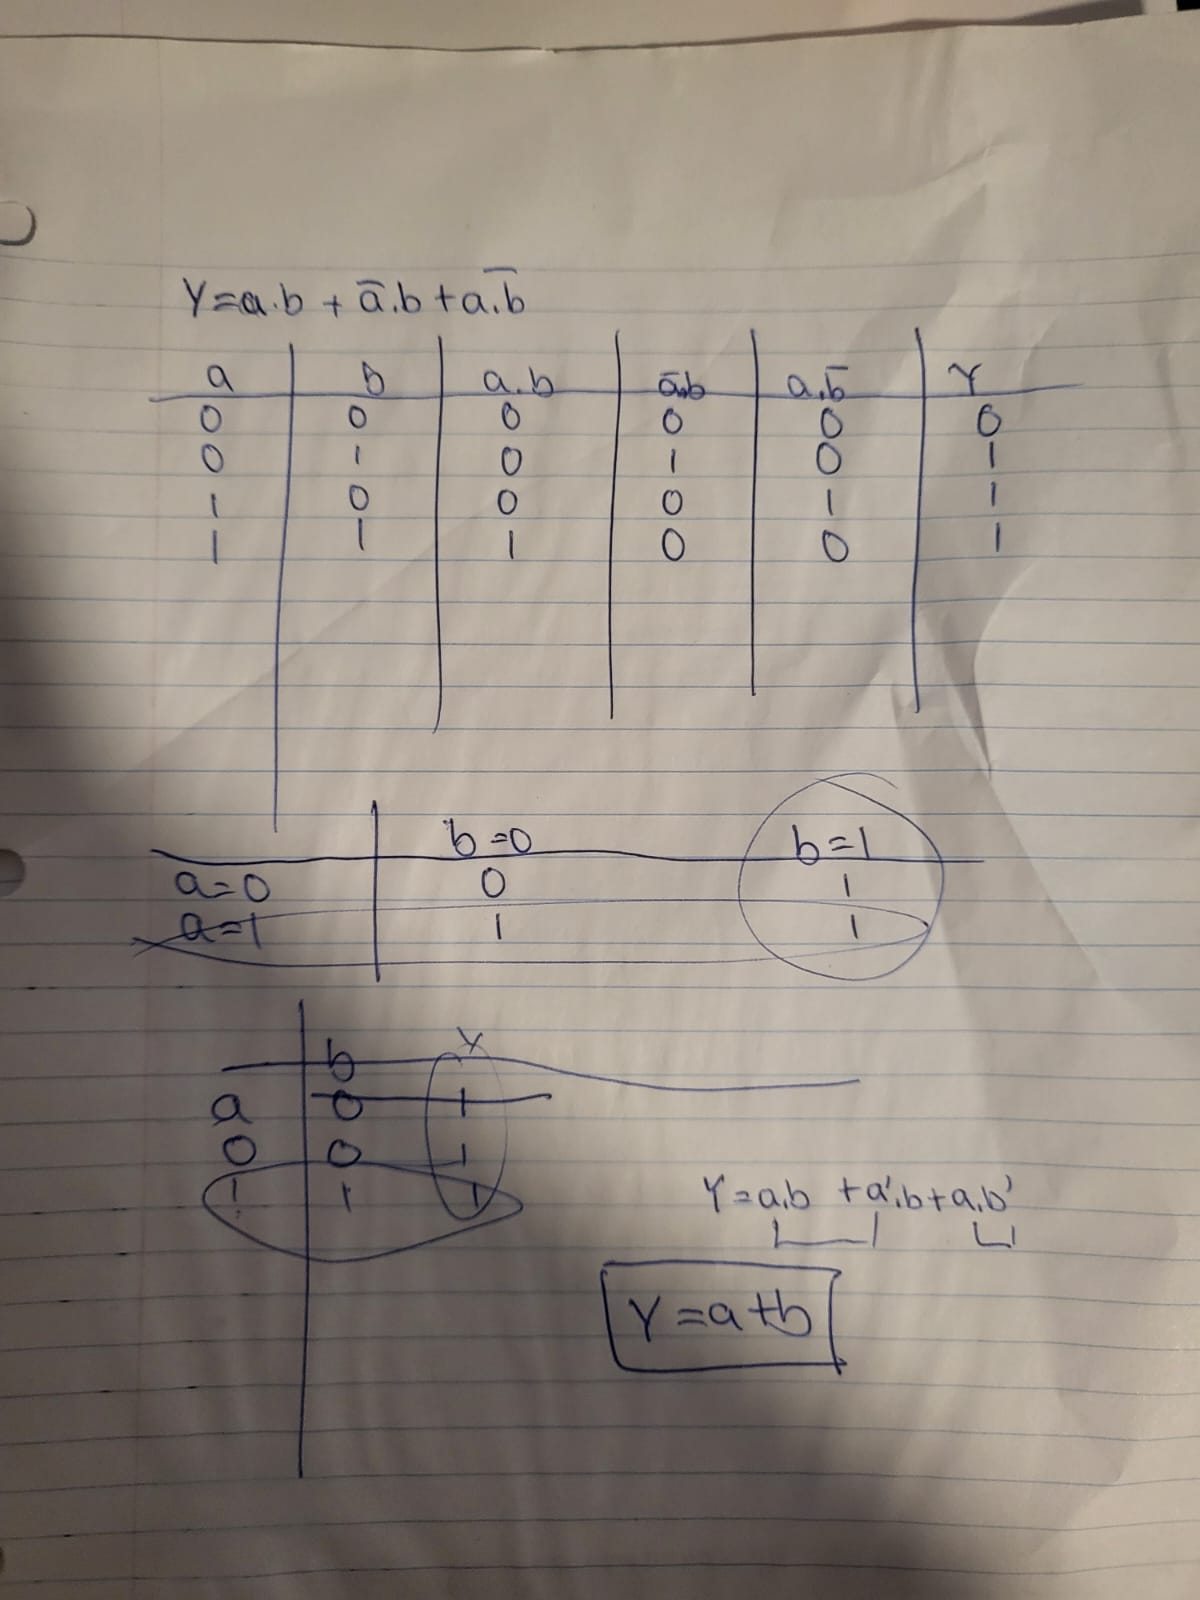 Y=a.b + a̅.b + a.b̅
a b a.b a̅.b a.b̅ Y
0 0 0 0 0 0
0 1 0 1 0 1
1 0 0 0 1 1
1 1 1 0 0 1
b=0 b=1
a=0 0 1
a=1 1 1
b Y
a 0 1
0 0 1
1 1 1
Y=a.b +a'.b+a.b'
Y=a+b